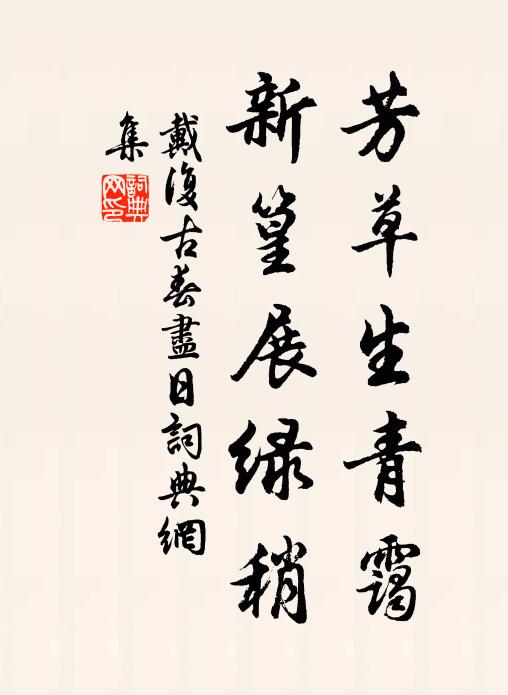 芳草生青靄
新篁展绿稍
戴復古春盡日詞典網
集
詞典
网印